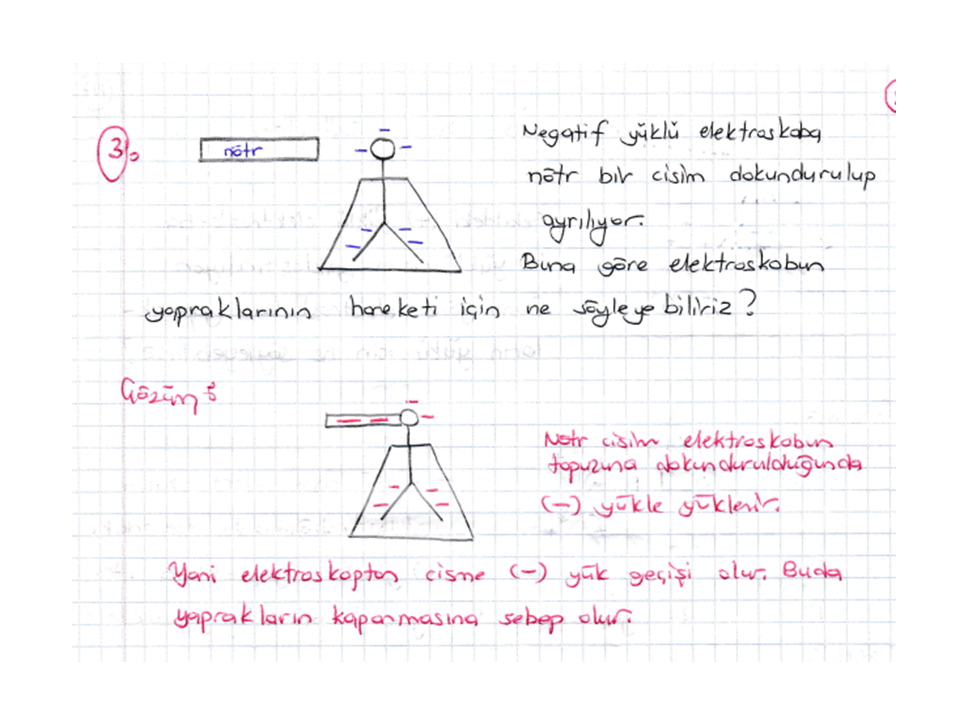 3.
nötr
Negatif yüklü elektroskoba
nötr bir cisim dokundurulup
ayrılıyor.
Buna göre elektroskobun
yapraklarının hareketi için ne söyleye biliriz?
Çözüm:
Nötr cisim elektroskobun
topuzuna dokundurulduğunda
(-) yükle yüklenir.
Yani elektroskoptan cisme (-) yük geçişi olur. Buda
yaprakların kapanmasına sebep olur.